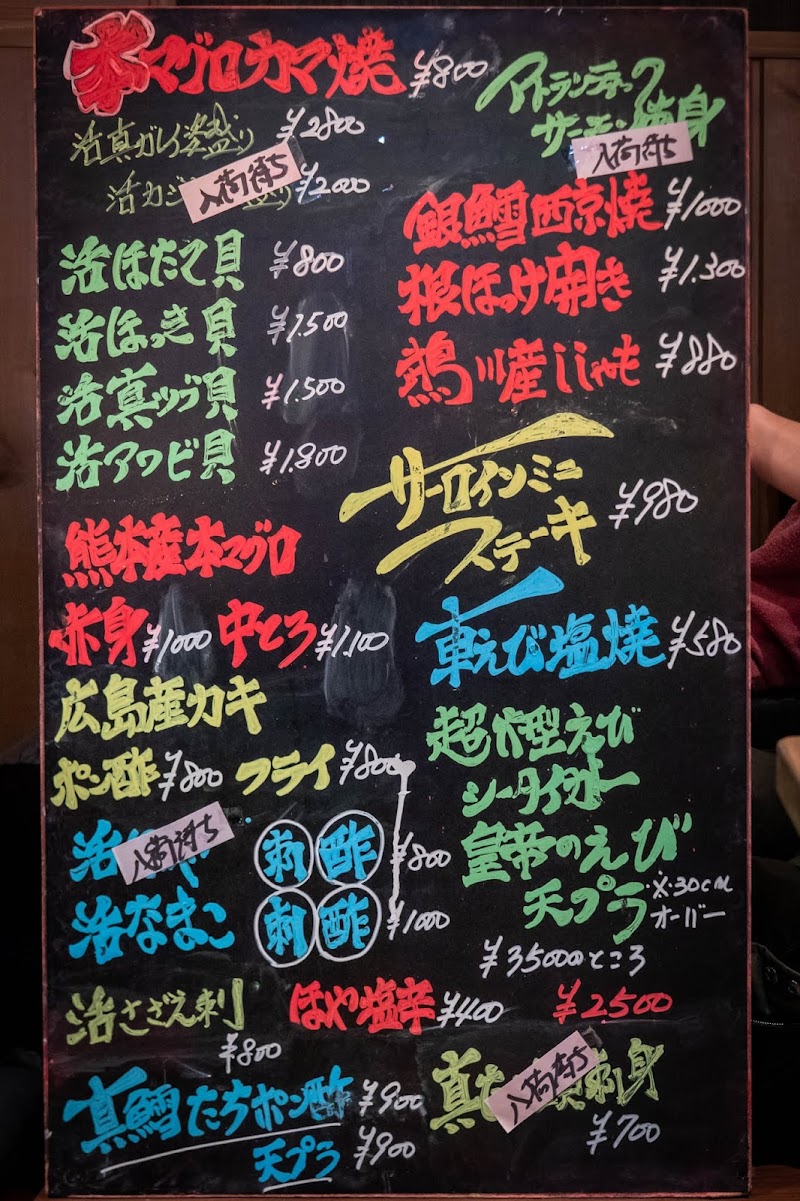 本マグロカマ焼 ¥800
活真ガレイ姿盛り ¥2800
活カジ 盛り ¥2000
入荷待ち
活ほたて貝 ¥800
活ほっき貝 ¥1.500
活真ツブ貝 ¥1.500
活アワビ貝 ¥1.800
熊本産本マグロ
赤身 ¥1000 中とろ ¥1.100
広島産カキ
ポン酢 ¥800 フライ ¥800
活 や 刺 酢 ¥800
入荷待ち
活なまこ 刺 酢 ¥1000
活さざえ刺
¥800
ほや塩辛 ¥400
真鱈たちポン酢 ¥900
天プラ ¥900
アトランティック
サーモン 身
入荷待ち
銀鱈西京焼 ¥1000
根ほっけ開き ¥1.300
鵡川産ししゃも ¥880
サーロインミニ
ステーキ ¥980
車えび塩焼 ¥580
超大型えび
シータイガー
皇帝のえび
天プラ ※30cm
オーバー
¥3500のところ
¥2500
真た 刺身
入荷待ち
¥700